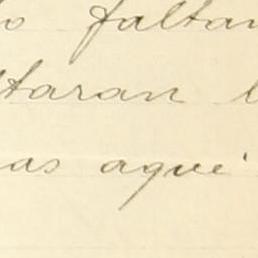 o faltan
taran l
as aqui